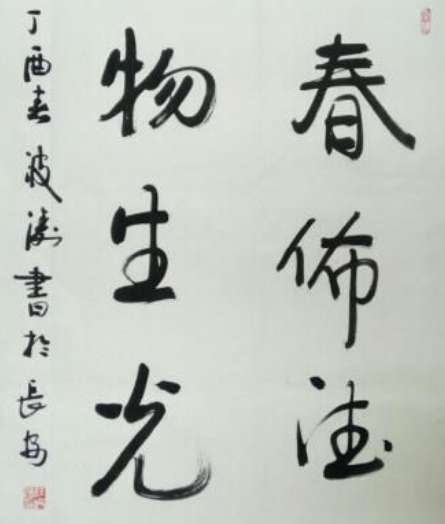 春佈法
物生光
丁酉春波涛書於長安